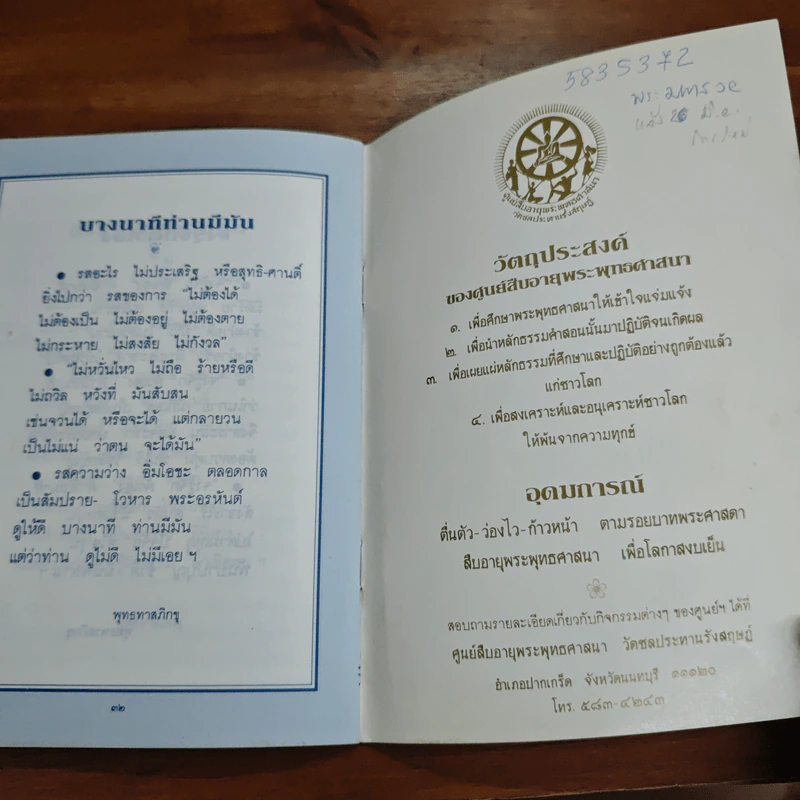 บางนาทีท่านมีมัน
● รสอะไร ไม่ประเสริฐ หรือสุทธิ-ศานติ์
ยิ่งไปกว่า รสของการ "ไม่ต้องได้
ไม่ต้องเป็น ไม่ต้องอยู่ ไม่ต้องตาย
ไม่กระหาย ไม่สงสัย ไม่กังวล"
● "ไม่หวั่นไหว ไม่ถือ ร้ายหรือดี
ไม่ถวิล หวังที่ มันสับสน
เช่นจวนได้ หรือจะได้ แต่กลายวน
เป็นไม่แน่ ว่าตน จะได้มัน"
● รสความว่าง อิ่มโอชะ ตลอดกาล
เป็นสัมปราย- โวหาร พระอรหันต์
ดูให้ดี บางนาที ท่านมีมัน
แต่ว่าท่าน ดูไม่ดี ไม่มีเอย ฯ
พุทธทาสภิกขุ
๓๒
5835372
พระ
ศูนย์สืบอายุพระพุทธศาสนา
วัดชลประทานรังสฤษฏ์
วัตถุประสงค์
ของศูนย์สืบอายุพระพุทธศาสนา
๑. เพื่อศึกษาพระพุทธศาสนาให้เข้าใจแจ่มแจ้ง
๒. เพื่อนำหลักธรรมคำสอนนั้นมาปฏิบัติจนเกิดผล
๓. เพื่อเผยแผ่หลักธรรมที่ศึกษาและปฏิบัติอย่างถูกต้องแล้ว
แก่ชาวโลก
๔. เพื่อสงเคราะห์และอนุเคราะห์ชาวโลก
ให้พ้นจากความทุกข์
อุดมการณ์
ตื่นตัว-ว่องไว-ก้าวหน้า ตามรอยบาทพระศาสดา
สืบอายุพระพุทธศาสนา เพื่อโลกาสงบเย็น
สอบถามรายละเอียดเกี่ยวกับกิจกรรมต่างๆ ของศูนย์ฯ ได้ที่
ศูนย์สืบอายุพระพุทธศาสนา วัดชลประทานรังสฤษฏ์
อำเภอปากเกร็ด จังหวัดนนทบุรี ๑๑๑๒๐
โทร. ๕๘๓-๔๒๔๓